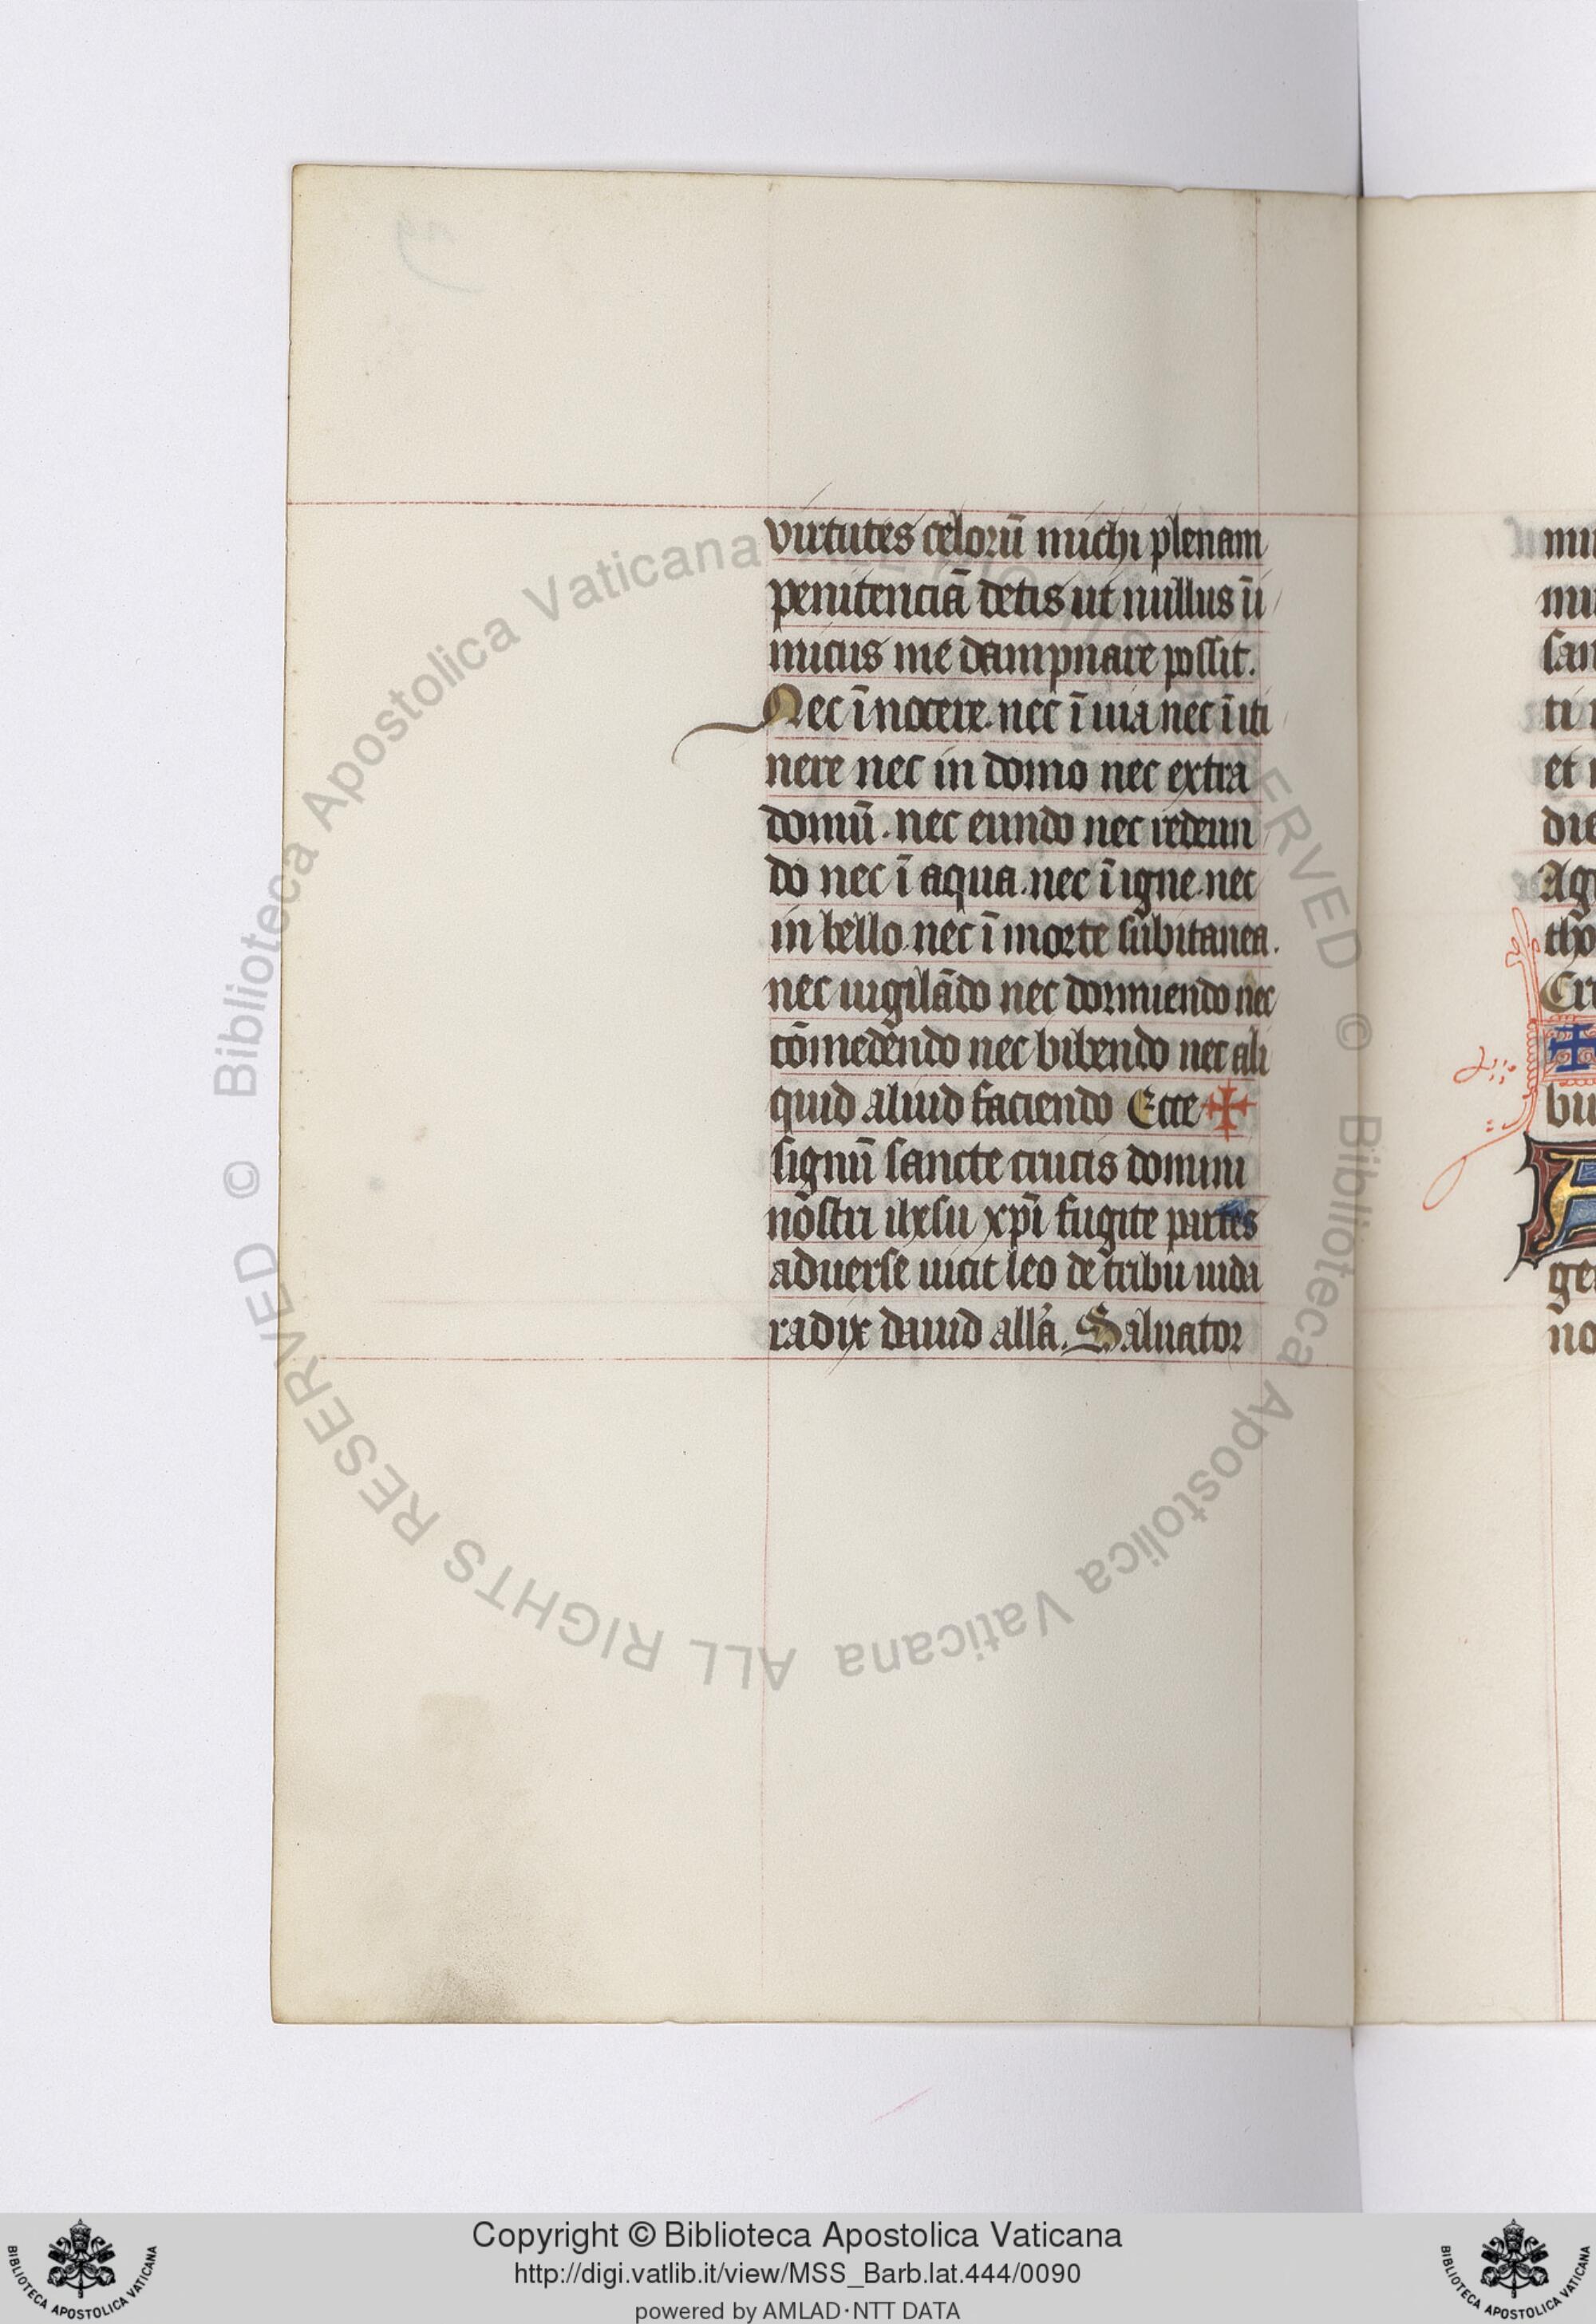 virtutes celorū michi plenam
penitenciā detis ut nullus īi
micus me dampnare possit.
Nec ī nocere. nec ī uia nec ī iti
nere nec in domo nec extra
domū. nec eundo nec redeun
do nec ī aqua. nec ī igne. nec
in bello. nec ī morte subitanea.
nec uigilādo nec dormiendo nec
cōmedendo nec bibendo nec ali
quid aliud faciendo Ecce ✠
signū sancte crucis domini
nostri ihesu xp̄i fugite partes
aduerse uicit leo de tribu iuda
radix dauid alla. Saluator
mi
mi
san
ti
et
die
Ag
tho
Cru
bu
A
ge
no
© Biblioteca Apostolica Vaticana ALL RIGHTS RESERVED © Biblioteca Apostolica Vaticana ALL RIGHTS RESERVED
Copyright © Biblioteca Apostolica Vaticana
http://digi.vatlib.it/view/MSS_Barb.lat.444/0090
powered by AMLAD·NTT DATA
BIBLIOTECA APOSTOLICA VATICANA
BIBLIOTECA APOSTOLICA VATICANA